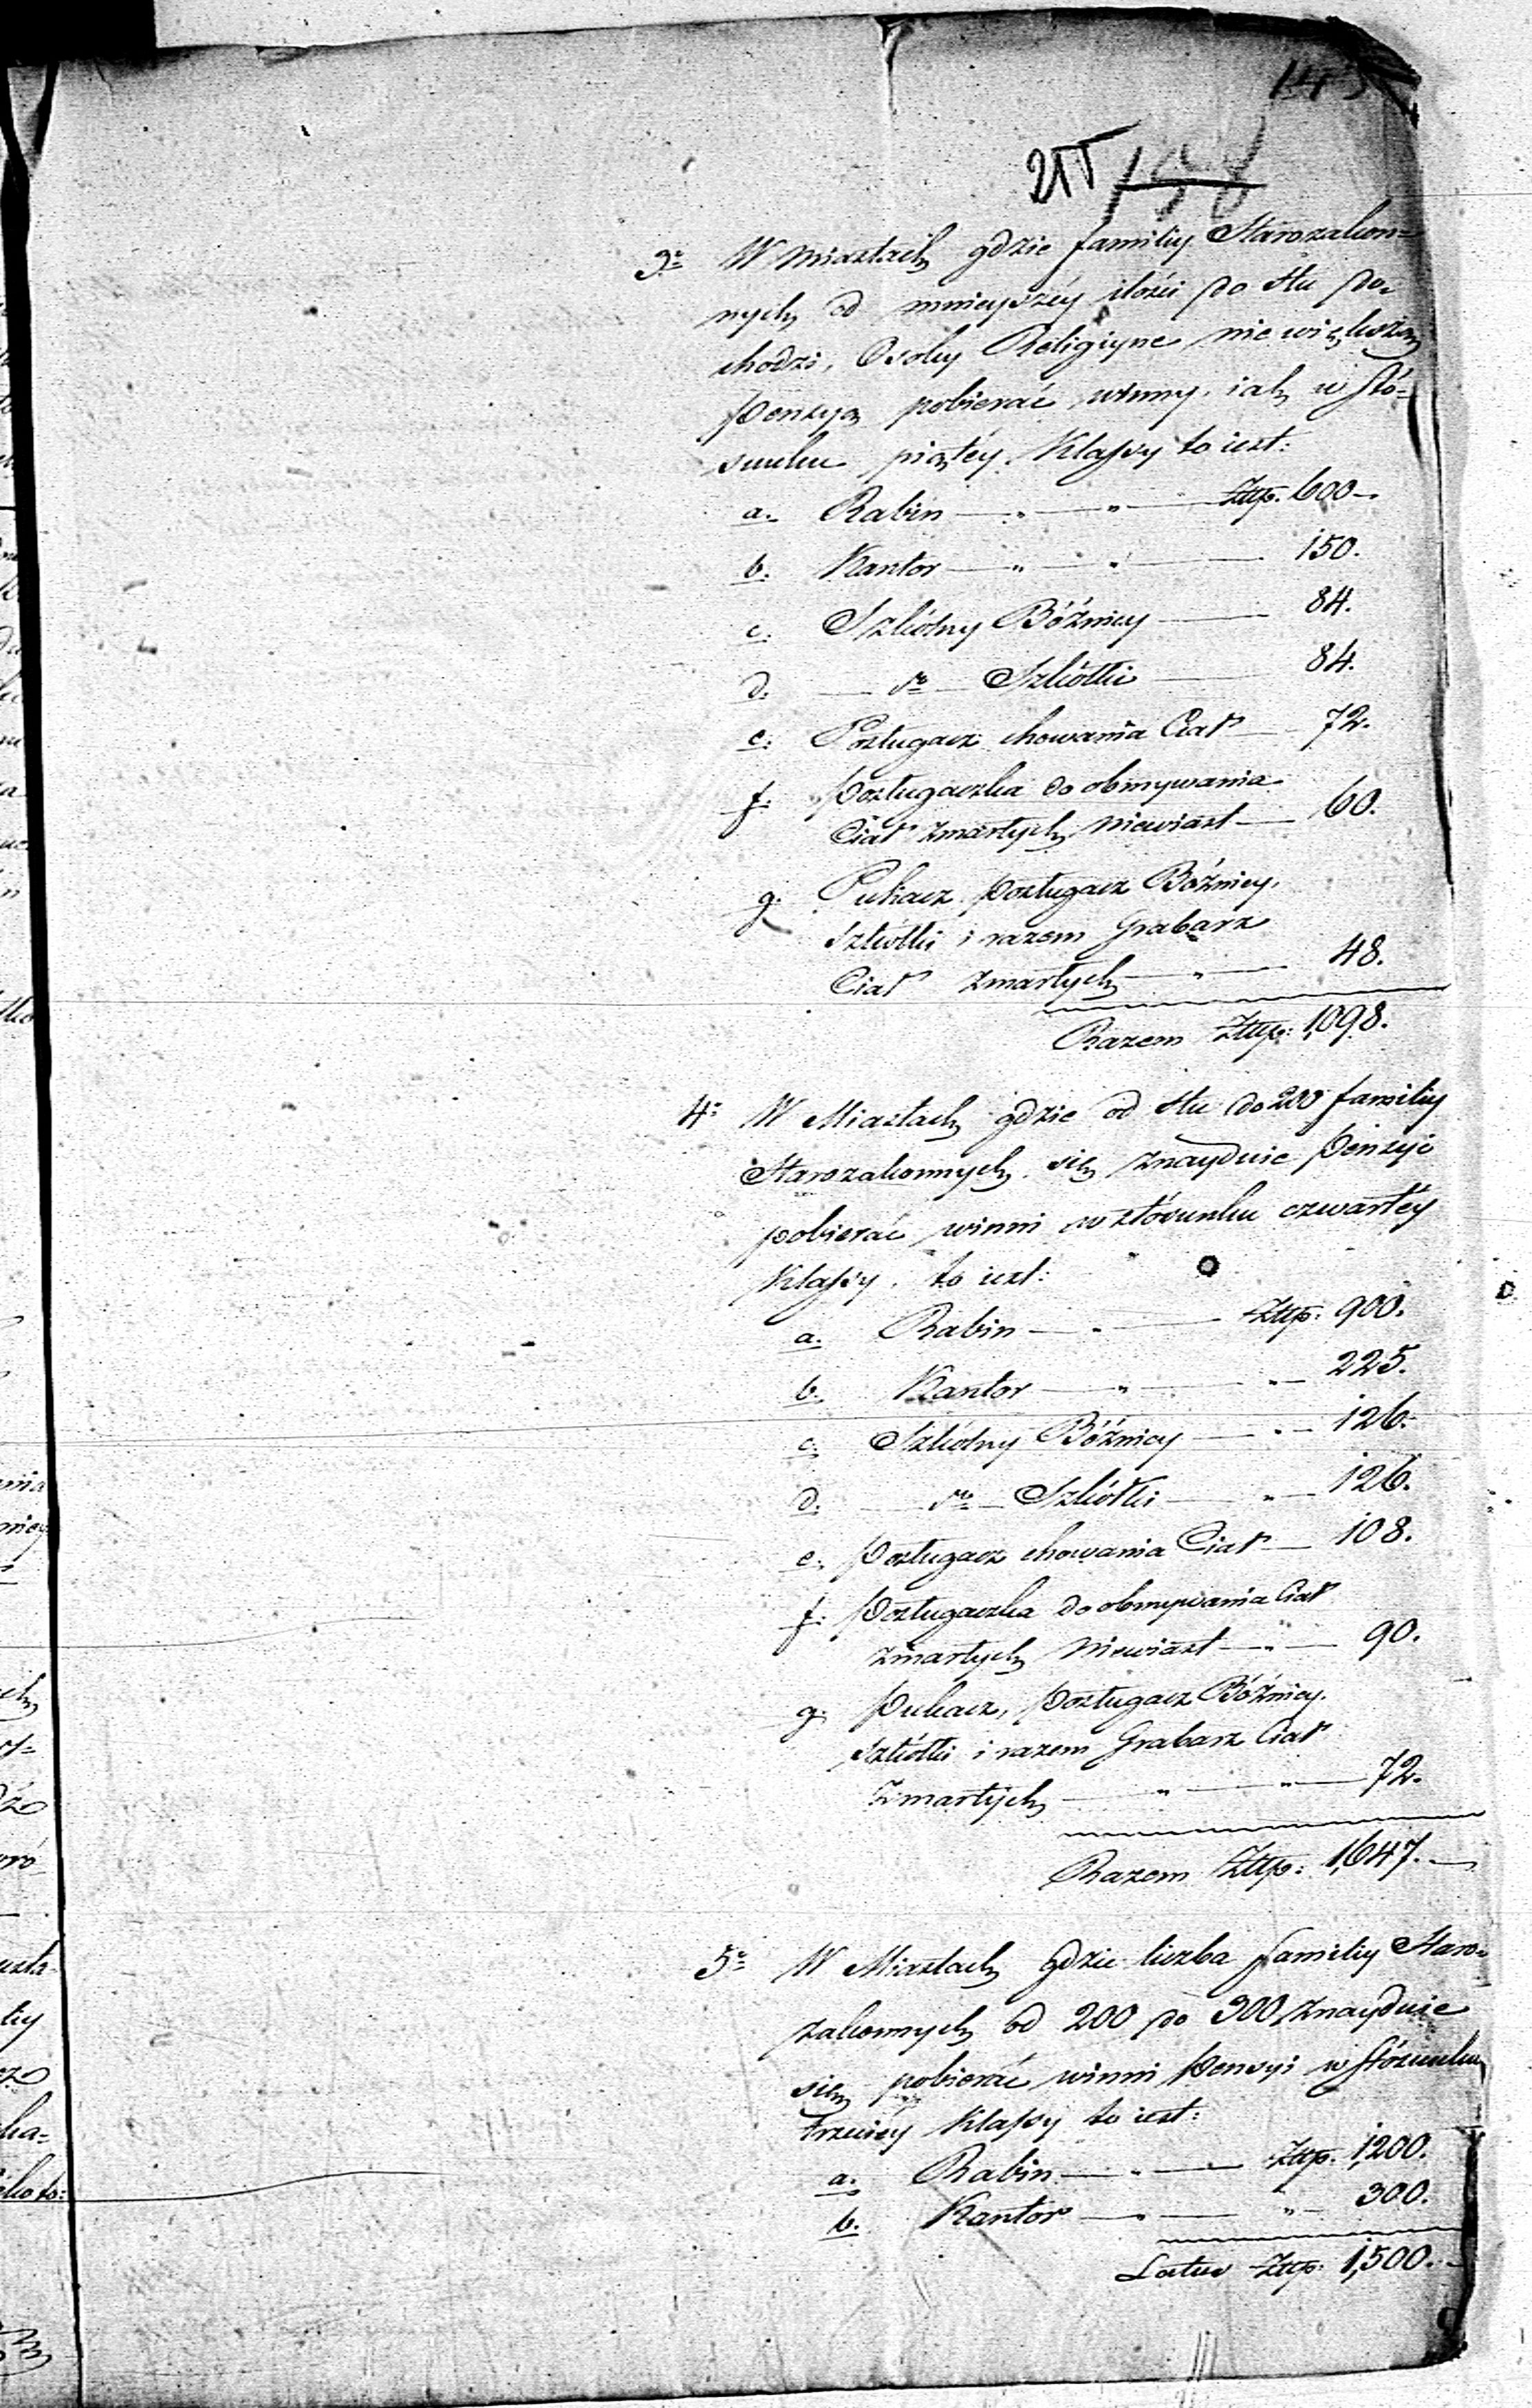 145
211 158
3o W Miastach gdzie familiy Starozakon=
nych od mnieyszéy ilości do stu do=
chodzi, Osoby Religiyne nie większą
Pensyą pobierać winny, iak w stó=
sunku piątéy Klassy to iest:
a. Rabin — „ — „ — Złtp. 600 —
b. Kantor — „ — „ — 150.
c. Szkólny Bóźnicy — 84.
d. — do — Szkółki — 84.
e. Posługacz chowania Ciał — 72.
f. Posługaczka do obmywania
Ciał zmarłych Niewiast — 60.
g. Pukacz Posługacz Bóźnicy,
Szkółki i razem Grabarz
Ciał zmarłych — „ — 48.
Razem Złtp: 1,098.
4o W Miastach gdzie od stu do 200 familiy
Starozakonnych się znayduie Pensye
pobierać winni w stósunku czwartéy
Klassy, to iest:
a. Rabin — „ — Złtp: 900.
b. Kantor — „ — „ — 225.
c. Szkólny Bóźnicy — „ — 126.
d. — do — Szkółki — „ — 126.
e. Posługacz chowania Ciał — 108.
f. Posługaczka do obmywania Ciał
zmarłych Niewiast — „ — 90.
g. Pukacz, Posługacz Bóźnicy,
Szkółki i razem Grabarz Ciał
Zmarłych — „ — „ — 72.
Razem Złtp: 1,647. —
5o W Miastach gdzie liczba familiy Staro=
zakonnych od 200 do 300 znayduie
się pobierać winni Pensyi w stósunku
trzeciéy Klassy to iest:
a. Rabin — „ — Złtp. 1,200.
b. Kantor — „ — „ — 300.
Latus Złtp. 1,500. —